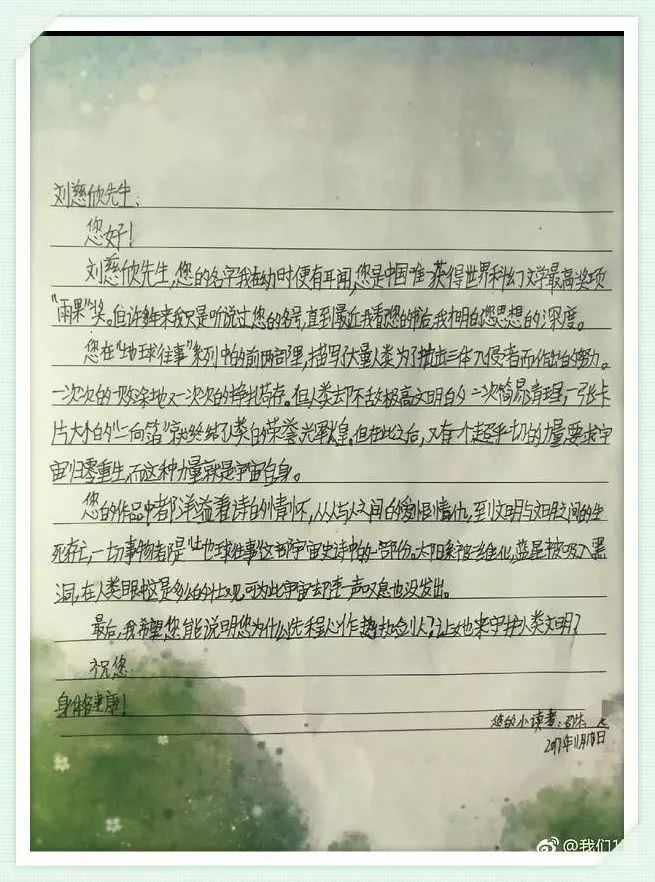 刘慈欣先生:
您好!
刘慈欣先生,您的名字我在幼时便有耳闻,您是中国唯一获得世界科幻文学最高奖项
"雨果"奖。但许多年来我只是听说过您的名号,直到最近我看您的书后,我才明白您思想的深度。
您在"地球往事"系列中的前两部里,描写了大量人类为了抵御三体入侵者而作出的努力。
一次次的一败涂地又一次次的挣扎苟存。但人类却不敌极高文明的一次简易清理,一张卡
片大小的"二向箔"就终结了人类的荣誉光辉煌。但在此之后,又有一个超乎一切的力量要求宇
宙归零重生,而这种力量就是宇宙自身。
您的作品中都洋溢着诗的情怀,从人与人之间的爱恨情仇,到文明与文明之间的生
死存亡,一切事物都是"地球往事"这部宇宙史诗中的一部份。太阳系被二维化,蓝星被吸入黑
洞,在人类眼中这是多么的壮观,可为此宇宙却连一声叹息也没发出。
最后,我希望您能说明您为什么选程心作为执剑人?让她来守护人类文明?
祝您
身体健康!
您的小读者:
2017年11月18日
@我们1